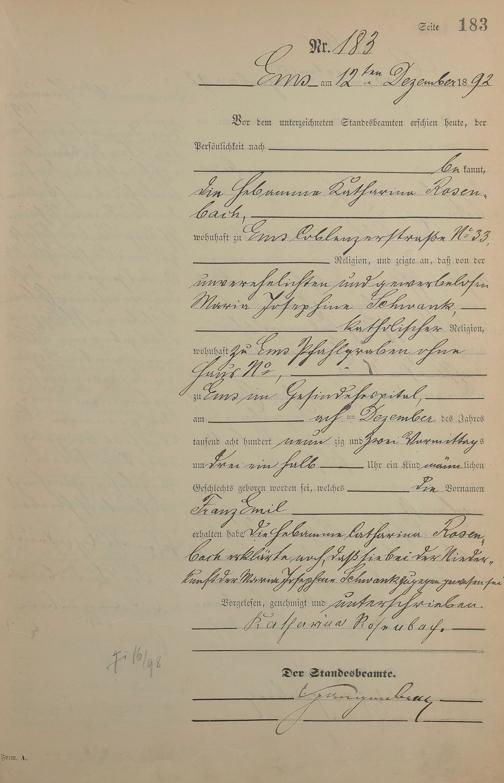 Seite 183
Nr. 183
Ems am 12ten Dezember 1892
Vor dem unterzeichneten Standesbeamten erschien heute, der
Persönlichkeit nach
bekannt,
die Hebamme Katharina Rosen-
bach,
wohnhaft zu Ems Coblenzerstraße No 33,
Religion, und zeigte an, daß von der
unverehelichten und gewerbelosen
Maria Josephine Schwank,
katholischer Religion,
wohnhaft zu Ems Pfahlgraben ohne
Haus No,
zu Ems im Gesindehospital,
am acht Dezember des Jahres
tausend acht hundert neunzig und zwei Vormittags
um drei ein halb Uhr ein Kind männlichen
Geschlechts geboren worden sei, welches die Vornamen
Franz Emil
erhalten habe. Die Hebamme Catharina Rosen-
bach erklärte noch, daß sie bei der Nieder-
kunft der Maria Josephine Schwank zugegen gewesen sei
Vorgelesen, genehmigt und unterschrieben.
Katharina Rosenbach.
Der Standesbeamte.
16/98
Form. A.